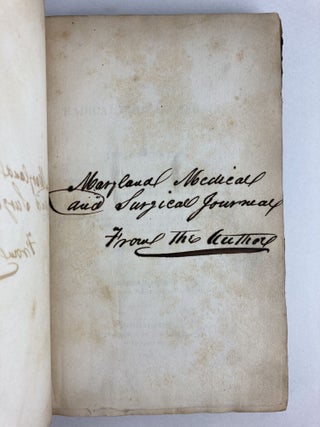 Maryland Medical
and Surgical Journal
From the Author